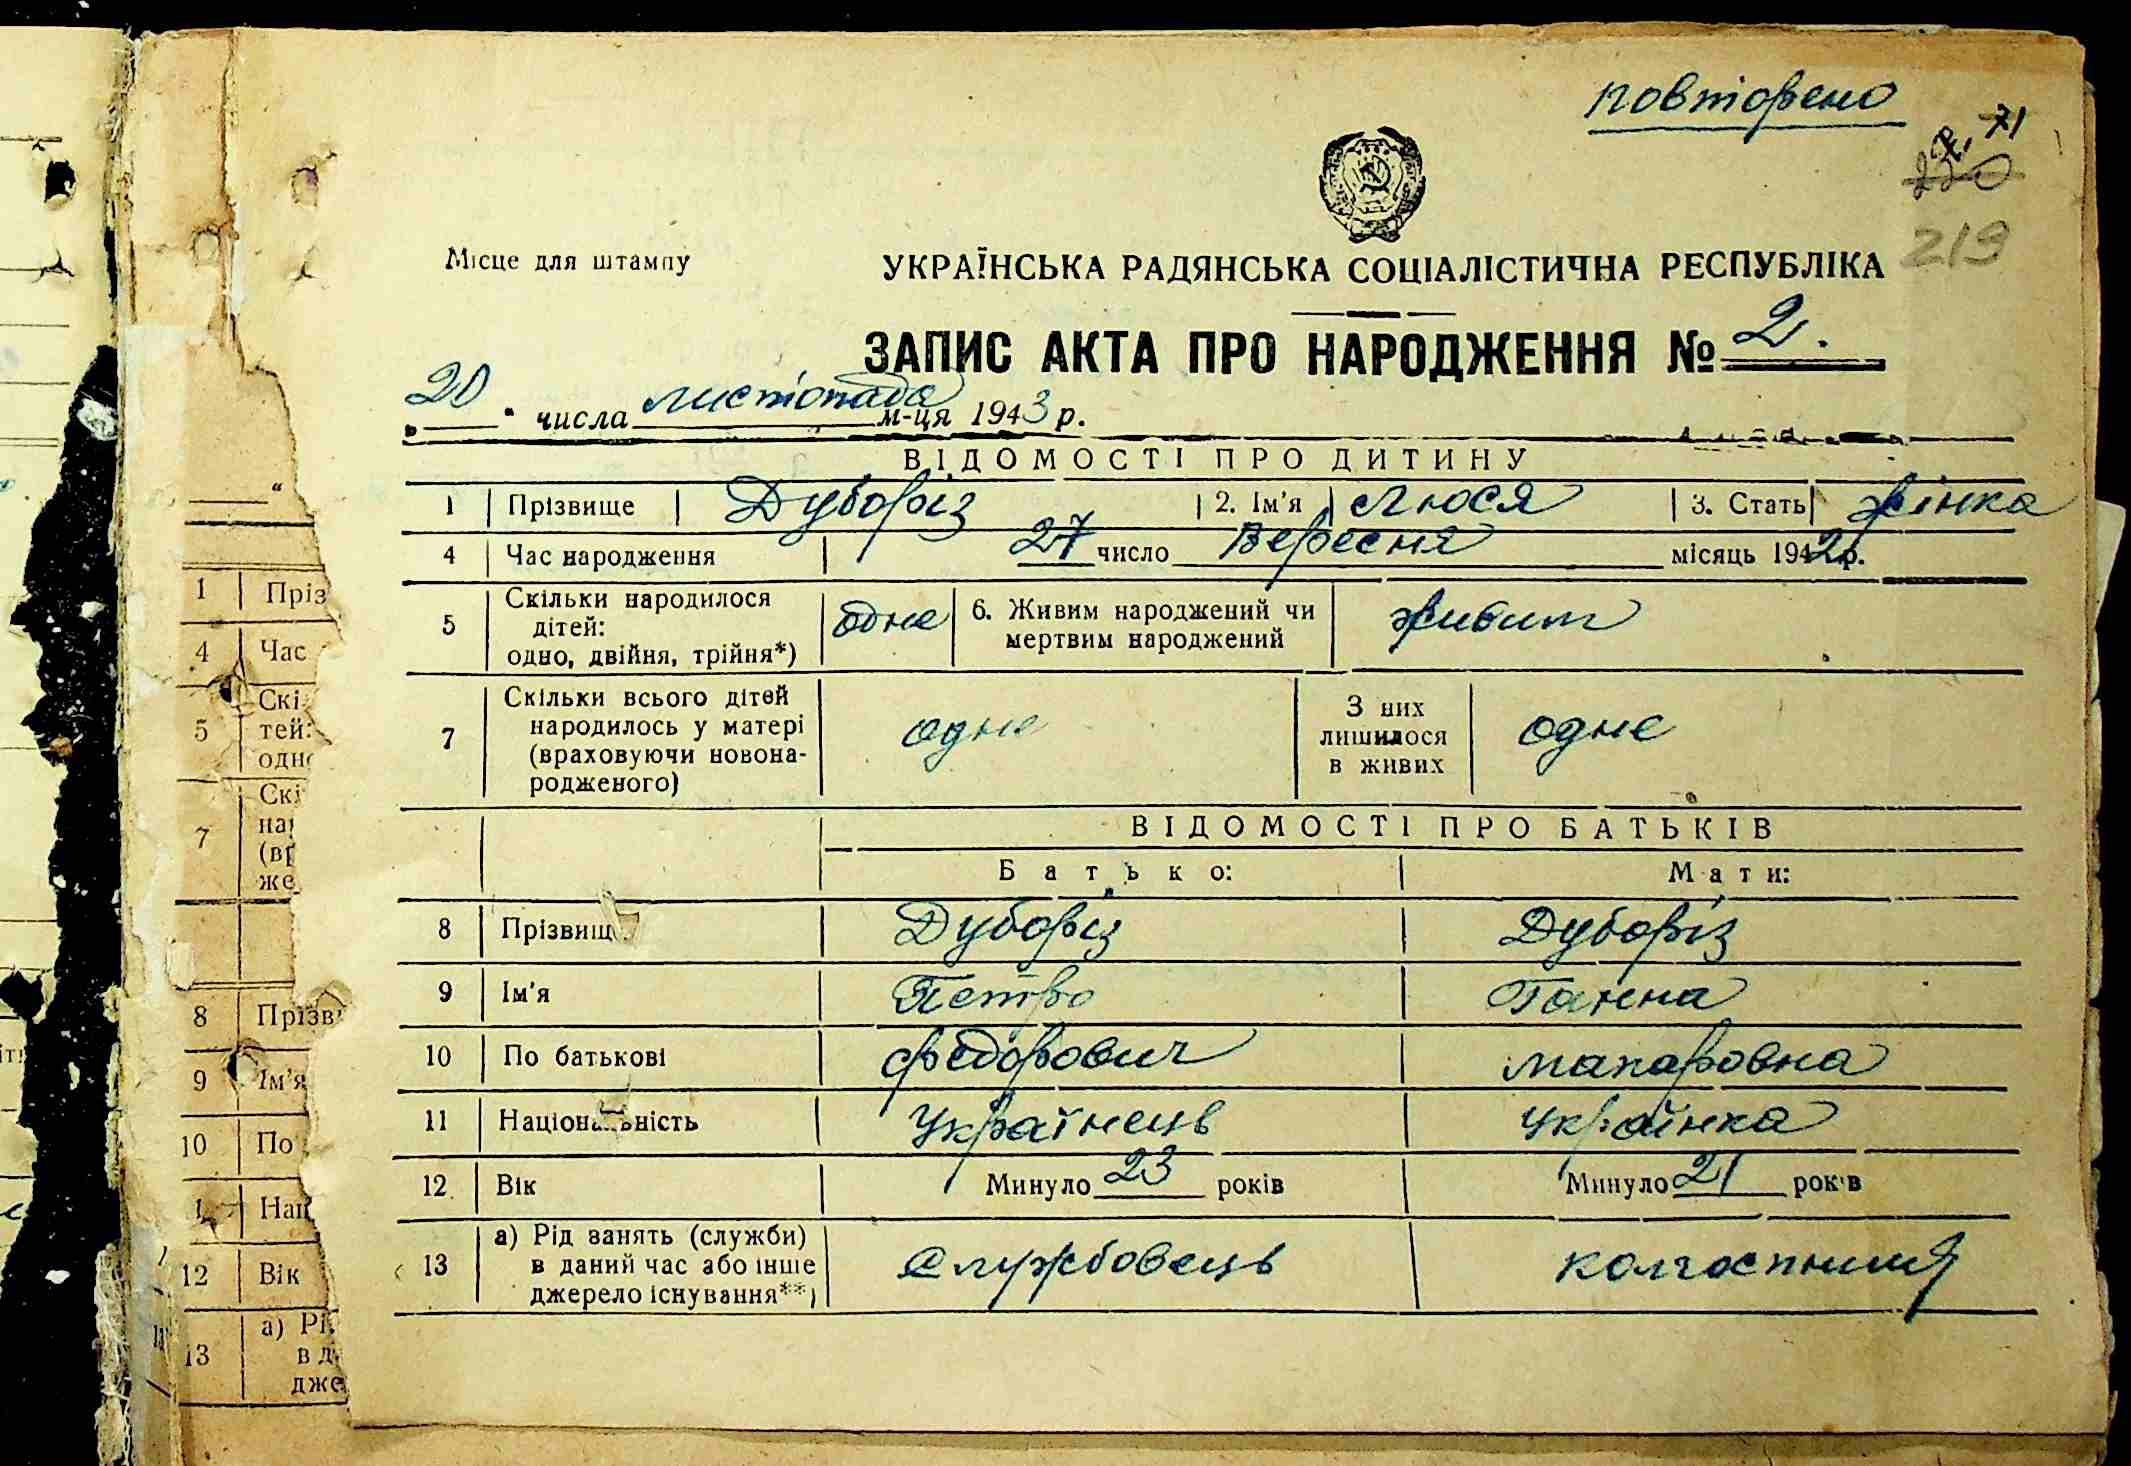 повторено
71
220
219
Місце для штампу
УКРАЇНСЬКА РАДЯНСЬКА СОЦІАЛІСТИЧНА РЕСПУБЛІКА
ЗАПИС АКТА ПРО НАРОДЖЕННЯ № 2.
„20“ числа листопада м-ця 1943 р.
ВІДОМОСТІ ПРО ДИТИНУ
1 Прізвище Дуборіз 2. Ім'я Люся 3. Стать жінка
4 Час народження 27 число Вересня місяць 1942 р.
5 Скільки народилося дітей: одно, двійня, трійня*) одне 6. Живим народжений чи мертвим народжений живим
7 Скільки всього дітей народилось у матері (враховуючи новонародженого) одне З них лишилося в живих одне
ВІДОМОСТІ ПРО БАТЬКІВ
Батько: Мати:
8 Прізвищ Дуборіз Дуборіз
9 Ім'я Петро Ганна
10 По батькові федорович макаровна
11 Національність Українець Українка
12 Вік Минуло 23 років Минуло 21 років
13 а) Рід занять (служби) в даний час або інше джерело існування**) Службовець колгоспниця
1 Пріз
4 Час
5 Скі
тей:
одно
7 Скі
на
(вр
же
8 Прізв
9 Ім'я
10 По
1 Нац
12 Вік
13 а) Рі
в д
дже